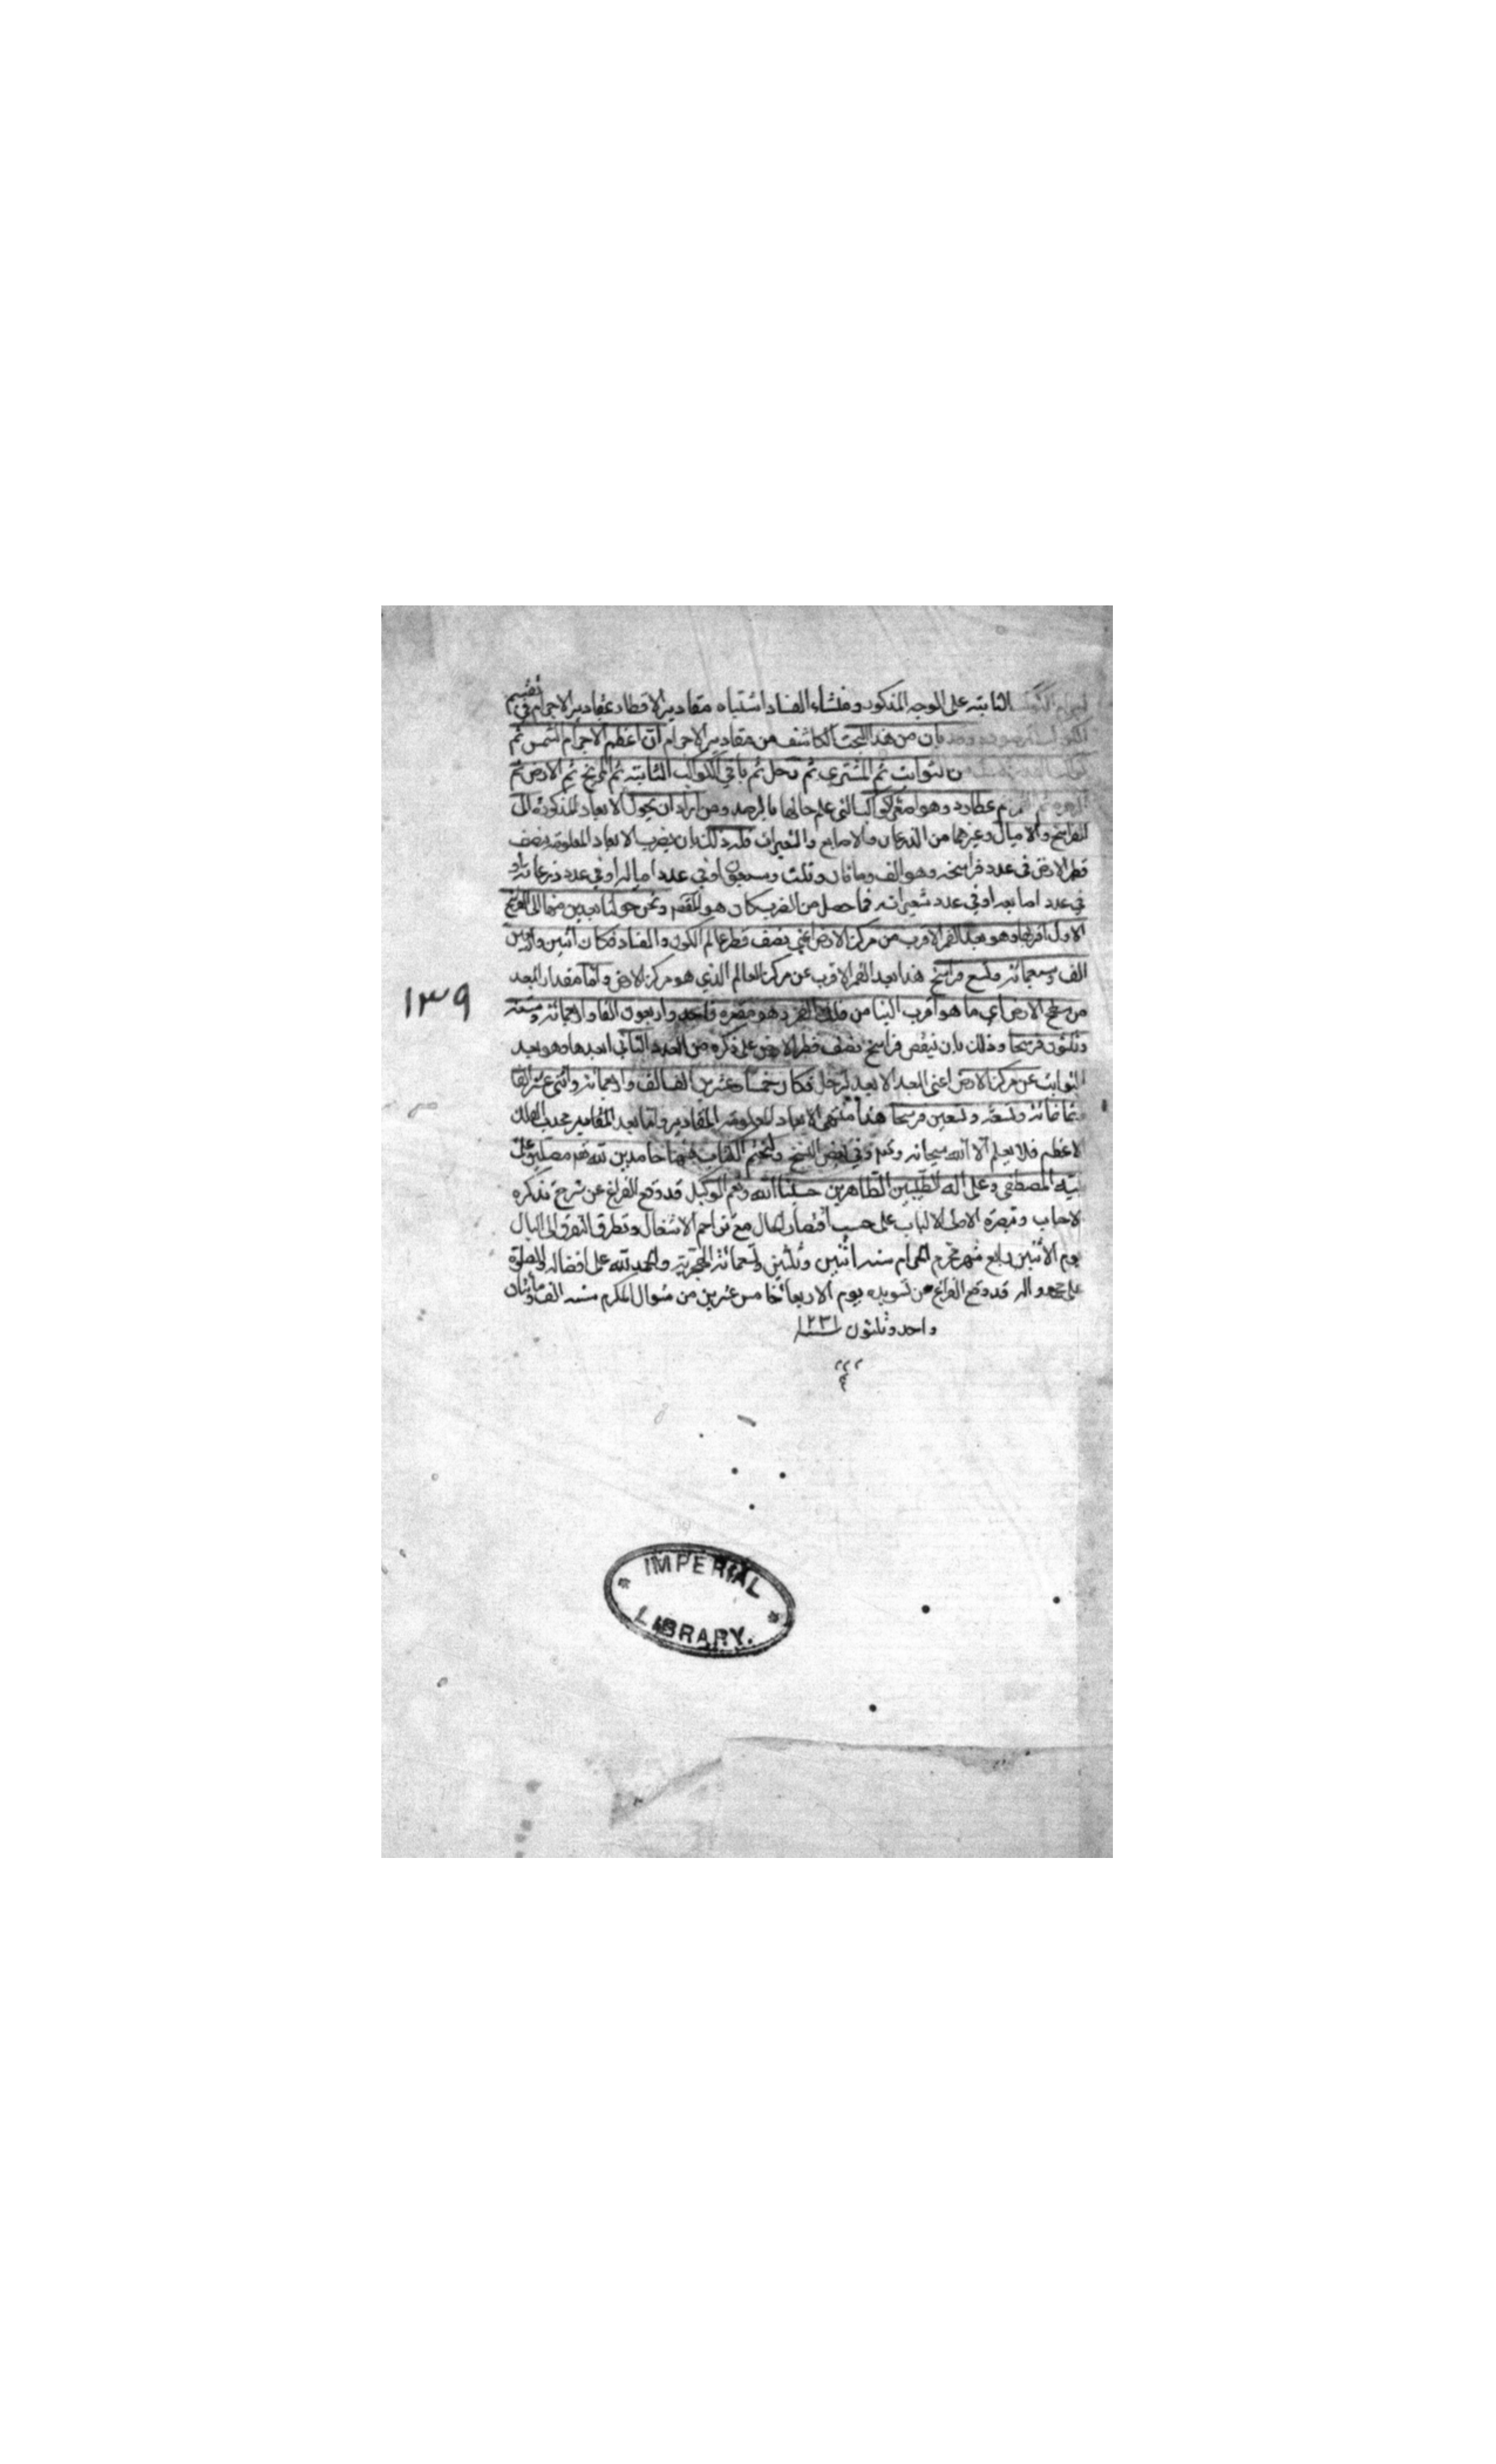 الثابتة على الوجه المذكور ومنشاء الفساد اشتباه مقادير الاقطار بمقادير الاجرام في تقسيم
بان من هذا البحث الكاشف من مقادير الاجرام ان اعظم الاجرام الشمس ثم
ثم المشتري ثم زحل ثم باقي الكواكب الثابتة ثم المريخ ثم الارض ثم
عطارد وهو اصغر الكواكب التي علم حالها بالرصد ومن اراد ان يحول الابعاد المذكورة الى
الفراسخ والاميال وغيرهما من الذرعان والاصابع والشعيرات فله ذلك بان يضرب الابعاد المعلومة بنصف
قطر الارض في عدد فراسخه وهو الف ومائتان وثلث وسبعون او في عدد امياله او في عدد ذرعانه او
في عدد اصابعه او في عدد شعيراته فما حصل من الضرب كان هو المقصد ونحن حولنا بعدين منها الى الفراسخ
الاول اقربها وهو بعد القمر الاقرب من مركز الارض اعني نصف قطر عالم الكون والفساد فكان اثنين واربعين
الف وسبعمائة وتسع فراسخ هذا بعد القمر الاقرب عن مركز العالم الذي هو مركز الارض واما مقدار البعد
من سطح الارض اي ما هو اقرب الينا من فلك القمر وهو مقعره فاحد واربعون الفا واربعمائة وستة
وثلثون فرسخا وذلك بان ينقص فراسخ نصف قطر الارض على ذكره من العدد الثاني ابعدها وهو بعد
الثوابت عن مركز الارض اعني البعد الابعد لزحل فكان خمسا وعشرين الف الف واربعمائة واثني عشر الفا
وثمانمائة وتسعة وتسعين فرسخا هذا منتهى الابعاد المعلومة المقادير واما بعد المقادير محدب الفلك
الاعظم فلا يعلم الا الله سبحانه وفي بعض النسخ ولنختم الكتاب حامدين لله تعالى مصلين على
نبيه المصطفى وعلى اله الطيبين الطاهرين حسبنا الله ونعم الوكيل قد وقع الفراغ عن شرح تذكرة
الاحباب وتبصرة الاولى الالباب على حسب اقتضاء الحال مع تزاحم الاشغال وتطرق التفرق الى البال
يوم الاثنين رابع شهر محرم الحرام سنة اثنين وثلثين وتسعمائة الهجرية والحمد لله على افضاله والصلوة
على محمد واله قد وقع الفراغ من تسويده يوم الاربعا خامس عشرين من شوال المكرم سنة الف ومائتان
واحد وثلثون ١٢٣١
١٣٩
IMPERIAL
LIBRARY.